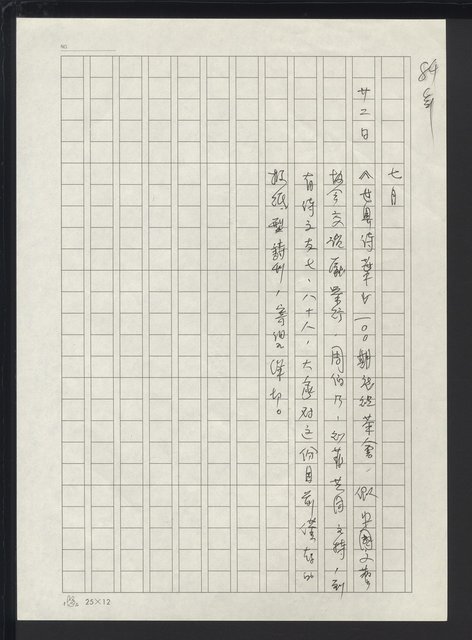 NO.
84年
七月
廿二日 《世界詩葉》一〇〇期慶祝茶會，假中國文藝
協會交流廳舉行 周伯乃、劉菲共同主持，到
有詩文友七、八十人，大家對這份目前僅存的
報紙型詩刊，寄望深切。
25×12